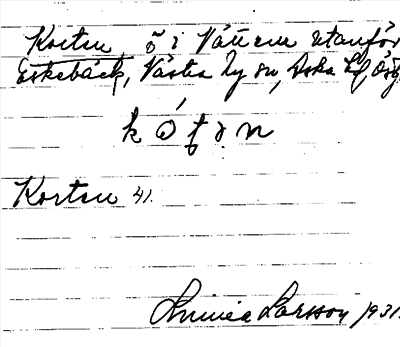 Korten, ö i Vättern utanför
Eskebäck, Västra Ny sn, Aska hd, Ög.
kóʈәn
Korten 41.
Linnéa Larsson 1931.